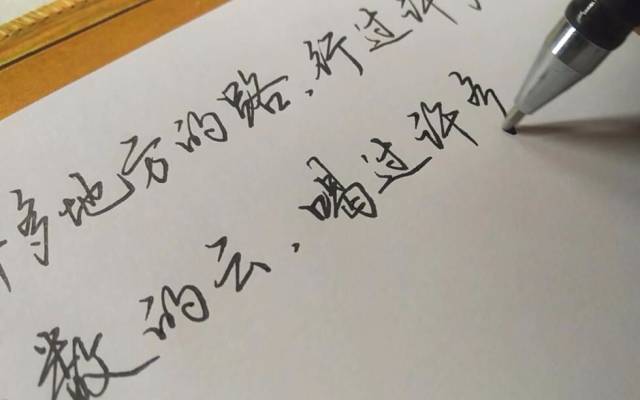 多地方的路，行过许
数的云，喝过许多